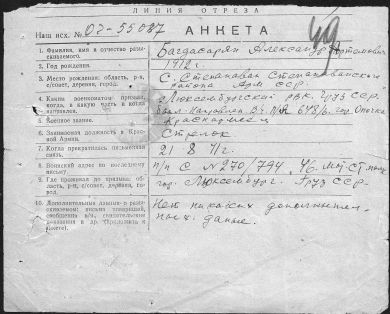 ЛИНИЯ ОТРЕЗА
Наш исх. № 02-55087
АНКЕТА
49
1. Фамилия, имя и отчество разыскиваемого.
Багдасарян Александр Артемович
2. Год рождения.
1912 г.
3. Место рождения: область, р-н, с/совет, деревня, город.
С. Степанаван Степанаванского района Арм ССР.
4. Каким военкоматом призван, когда, в какую часть и когда направлен.
Люксембургский рвк. Груз ССР. был направлен В.Ч № 648/6. гор. Опочка
5. Военное звание.
Красноармеец
6. Занимаемая должность в Красной Армии.
Стрелок
7. Когда прекратилась письменная связь.
21 8 41 г.
8. Воинский адрес по последнему письму.
п/п с № 270/794.
9. Где проживал до призыва: область, р-н, с/совет, деревня, город.
гор. Люксембург. Груз ССР.
10. Дополнительные данные о разыскиваемом:
Нет никаких дополнительных данные.